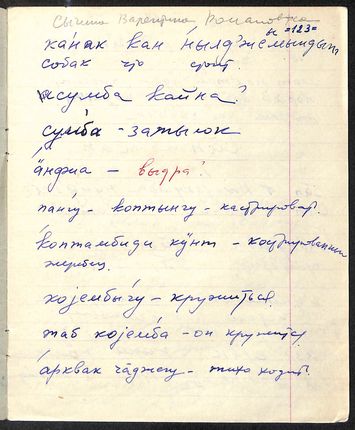 Сычина Валентина Романовна
-123-
ка́нак кан ны́лд'жемындыт
собак что стоит.
ксумба кайна?
су́мба - затылок
ӓ́нджа - выдра?
паңгу - коптыңгу - кастрироват.
ко́птамбиди кӱнт - кострированный
жеребец.
којембы́гу - кружиться.
таб којемба - он кружится
а́рквак ча̄джегу - тихо ходит.